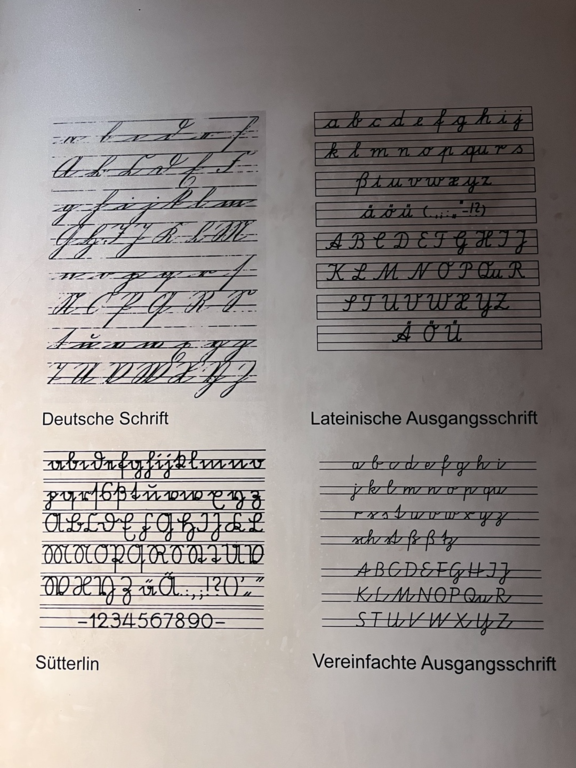 a b c d e f
A B C D E F
g h i j k l m
G H I J K L M
n o p q r s
N O P Q R S
t u v w x y z
T U V W X Y Z
Deutsche Schrift
a b c d e f g h i j
k l m n o p qu r s
ß t u v w x y z
ä ö ü (.,:;"-!?)
A B C D E F G H I J
K L M N O P Qu R
S T U V W X Y Z
Ä Ö Ü
Lateinische Ausgangsschrift
abcdefghijklmno
pqrsßtuvwxyz
ABCDEFGHIJKL
MNOPQRSTUV
WXYZ äÄ.:,;!?()'„“
-1234567890-
Sütterlin
a b c d e f g h i
j k l m n o p qu
r x s t u v w x y z
sch st ß ß tz
A B C D E F G H I J
K L M N O P Qu R
S T U V W X Y Z
Vereinfachte Ausgangsschrift